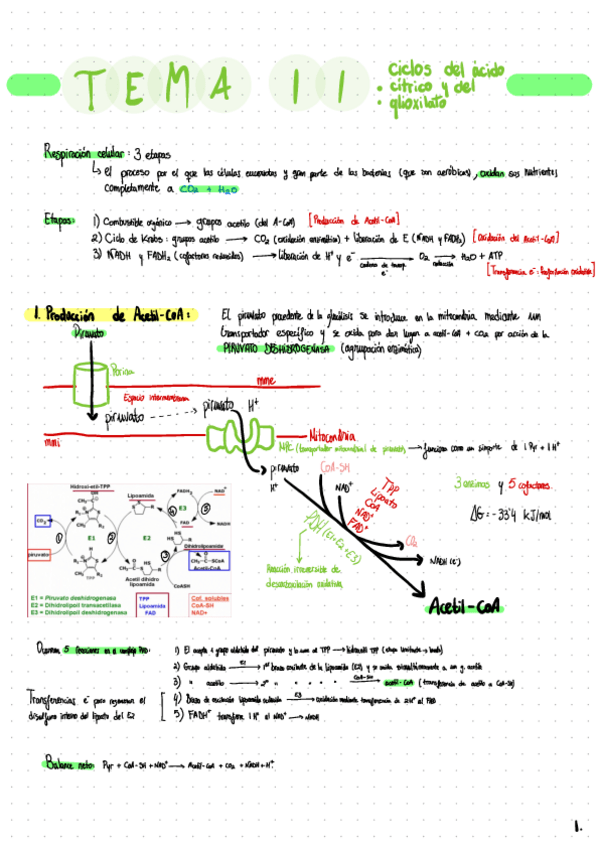 TEMA 11
Ciclos del ácido
cítrico y del
glioxilato
Respiración celular: 3 etapas
↳ el proceso por el que las células eucariotas y gran parte de las bacterias (que son aeróbicas), oxidan sus nutrientes
completamente a CO2 + H2O
Etapas: 1) Combustible orgánico → grupos acetilo (del A-CoA) [Producción de Acetil-CoA]
2) Ciclo de Krebs: grupos acetilo → CO2 (oxidación enzimática) + liberación de E (NADH y FADH2) [Oxidación del Acetil-CoA]
3) NADH y FADH2 (cofactores reducidos) → liberación de H+ y e- → O2 → H2O + ATP
cadena de transp. e- reducción
[Transferencia e-: fosforilación oxidativa]
1. Producción de Acetil-CoA:
El piruvato procedente de la glucólisis se introduce en la mitocondria mediante un
transportador específico y se oxida para dar lugar a acetil-CoA + CO2 por acción de la
PIRUVATO DESHIDROGENASA (agrupación enzimática)
Piruvato
Porina
mme
Espacio intermembrana
piruvato
piruvato H+
mmi
Mitocondria
MPC (transportador mitocondrial de piruvato) → funciona como un simporte de 1 Pyr + 1 H+
piruvato
H+
CoA-SH
NAD+
TPP
Lipoato
CoA
NAD+
FAD+
3 enzimas y 5 cofactores
ΔG = -33'4 kJ/mol
PDH (E1+E2+E3)
CO2
NADH (e-)
Reacción irreversible de
descarboxilación oxidativa
Acetil-CoA
Hidroxi-etil-TPP
Lipoamida
FADH2
NAD+
CO2
E1
E2
E3
FAD
NADH
Dihidrolipoamida
piruvato
TPP
Acetil dihidro
lipoamida
Acetil-CoA
CoASH
E1 = Piruvato deshidrogenasa
E2 = Dihidrolipoil transacetilasa
E3 = Dihidrolipoil deshidrogenasa
TPP
Lipoamida
FAD
Cof. solubles
CoA-SH
NAD+
Ocurren 5 reacciones en el complejo PDH:
1) El acopla grupo aldehído del piruvato y lo une al TPP → hidroxietil TPP (etapa limitante)
2) Grupo aldehído E1 → 1er brazo oxidante de la lipoamida (E2) y se oxida simultáneamente a un g. acetilo
3) " acetilo → 2º " " " " CoA-SH → acetil-CoA (transferencia de acetilo a CoA-SH)
Transferencias e- para regenerar el
disulfuro interno del lipoato del E2
4) oxidación E3 → oxidación mediante transferencia de 2H+ al FAD
5) FADH+ transfiere 1H+ al NAD+ → NADH
Balance neto: Pyr + CoA-SH + NAD+ → Acetil-CoA + CO2 + NADH + H+
1.